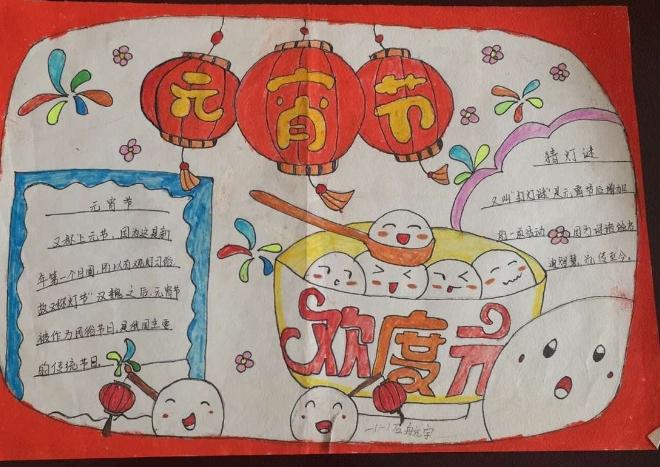 元宵节
元宵节
又称上元节，因为这是新
年第一个月圆，所以有观灯习俗
故又称灯节"汉魏之后，元宵节
被作为民俗节日，是我国主要
的传统节日。
猜灯谜
又叫"打灯谜"是元宵节后增加
的一项活动 因为谜语能启
迪智慧，流传至今。
欢度元